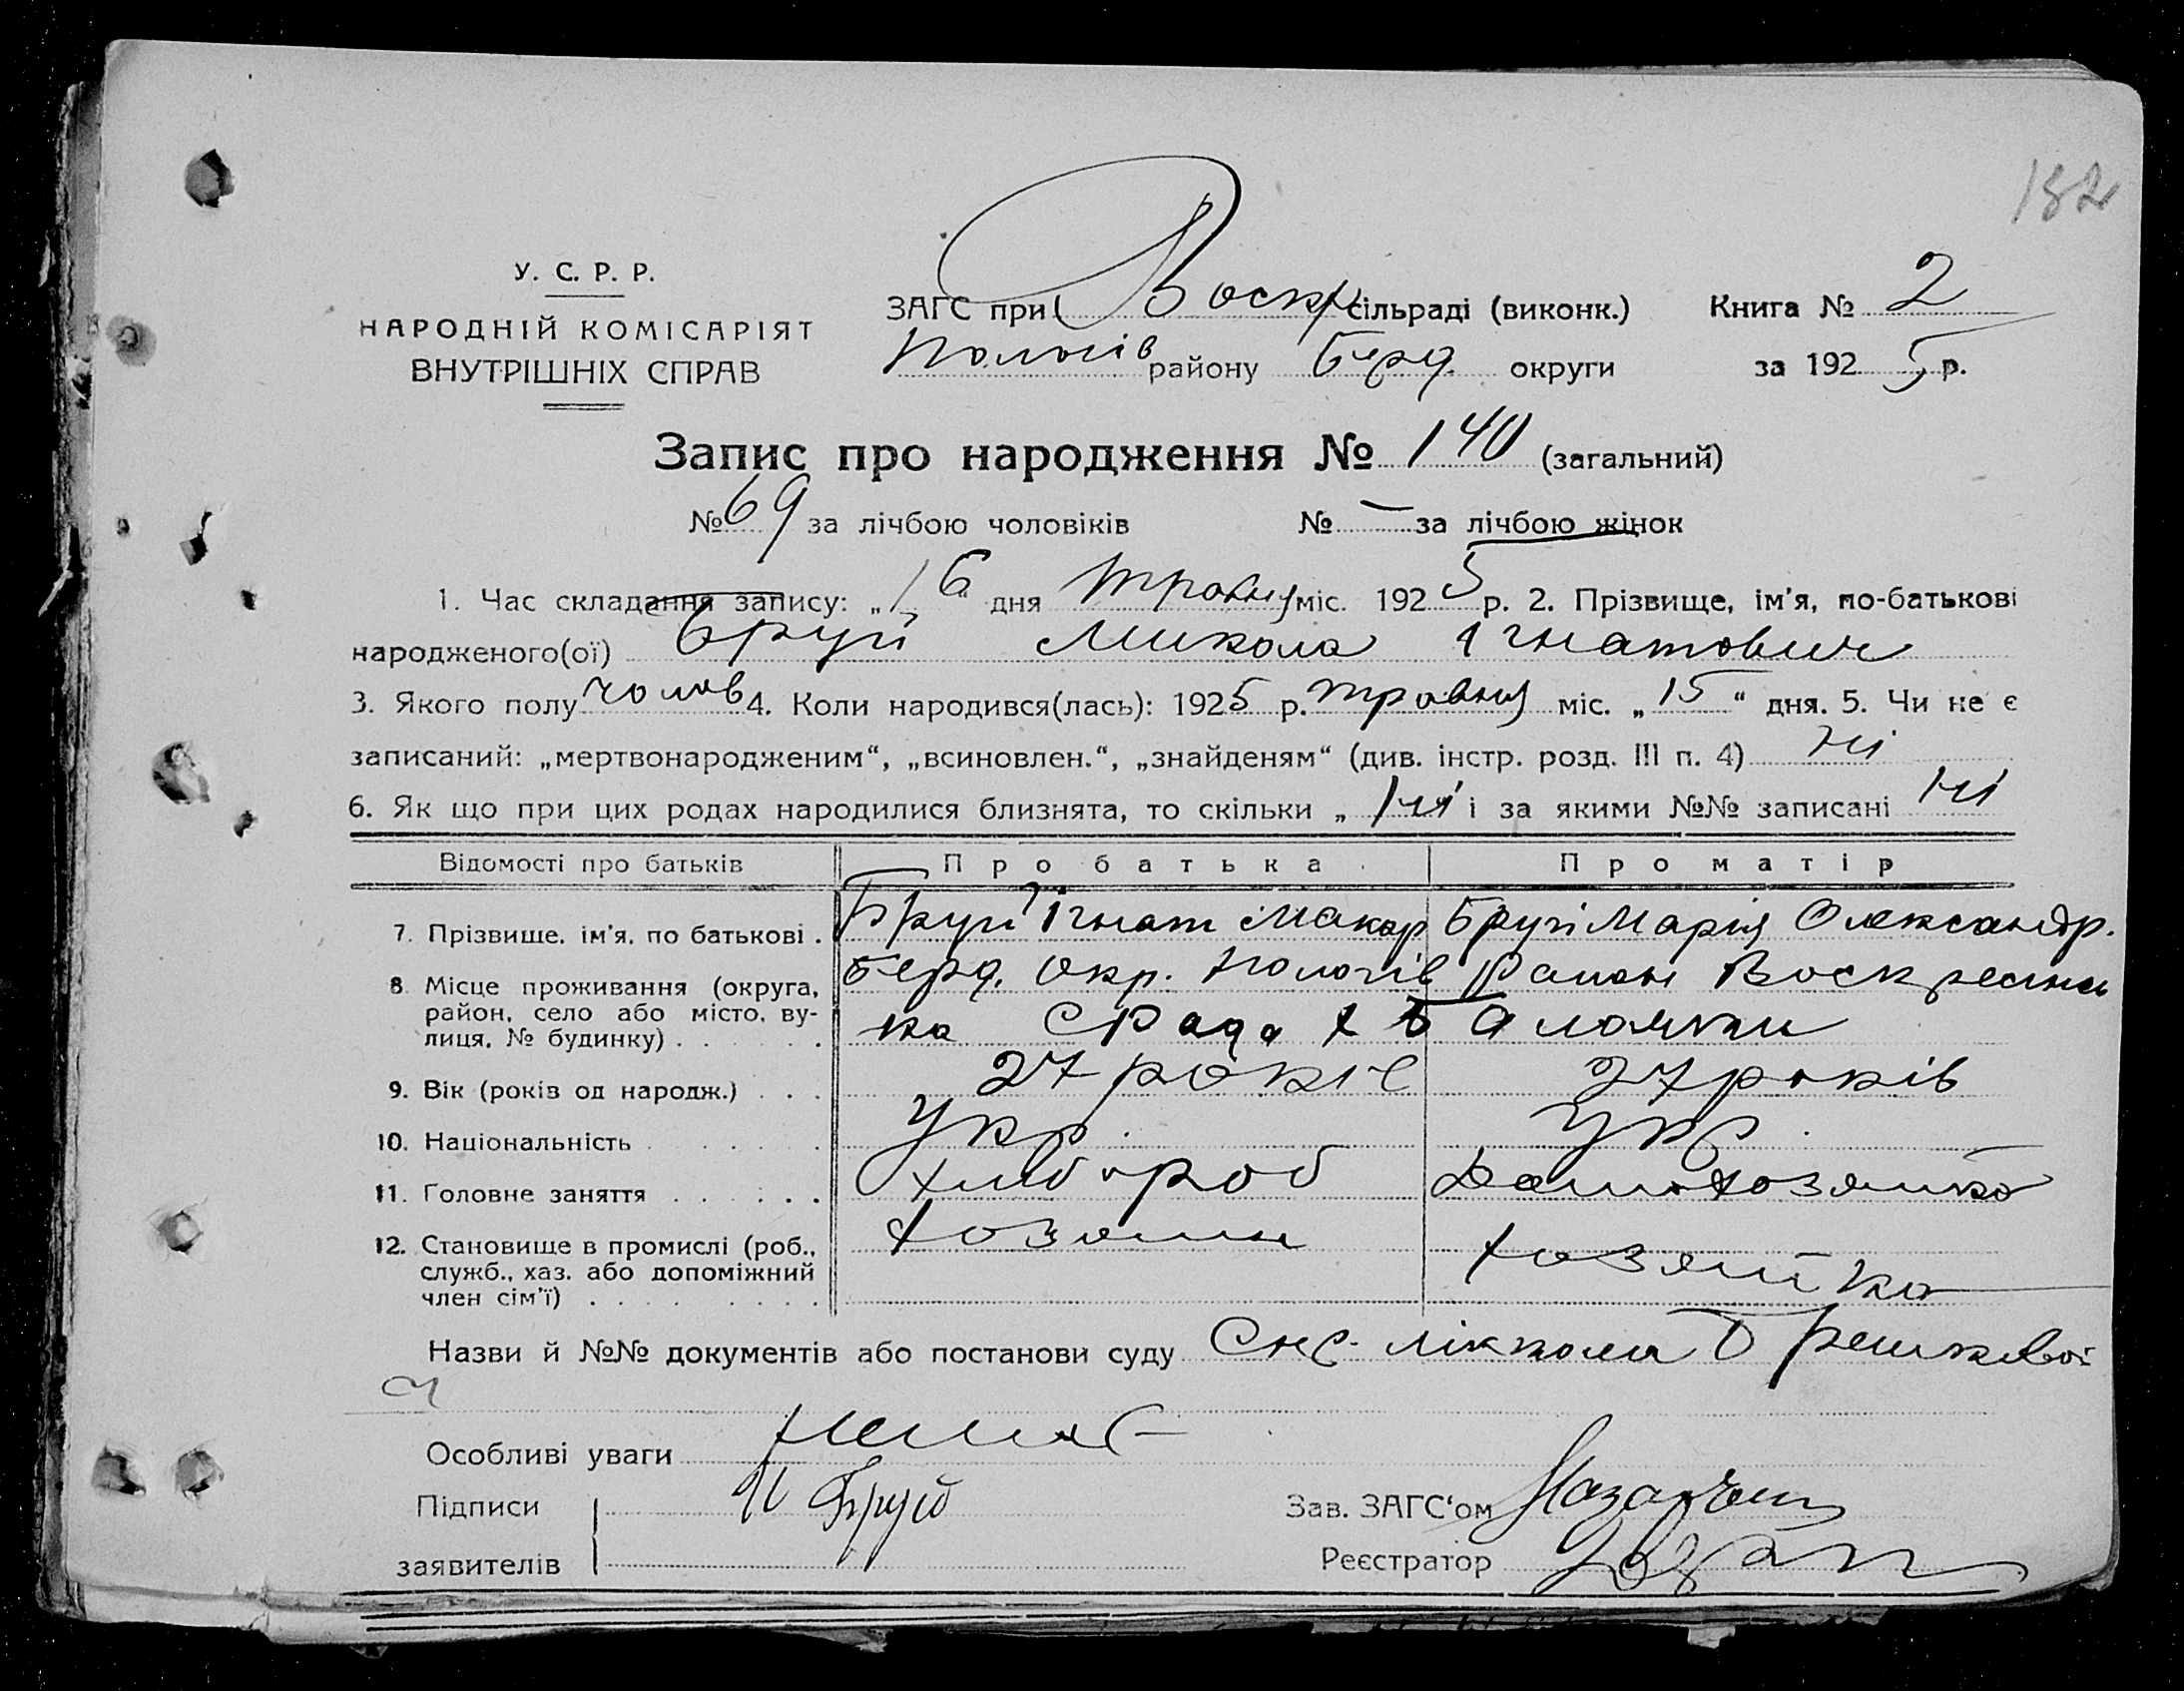 182
У. С. Р. Р.
НАРОДНІЙ КОМІСАРІЯТ
ВНУТРІШНІХ СПРАВ
ЗАГС при Воскр сільраді (виконк.) Книга № 2
Пологів району Берд. округи за 1925 р.
Запис про народження № 140 (загальний)
№ 69 за лічбою чоловіків № – за лічбою жінок
1. Час складання запису: „16“ дня травня міс. 1925 р. 2. Прізвище, ім'я, по-батькові
народженого(ої) Бруй Микола Ігнатович
3. Якого полу чолов 4. Коли народився(лась): 1925 р. травня міс. „15“ дня. 5. Чи не є
записаний: „мертвонародженим“, „всиновлен.“, „знайденям“ (див. інстр. розд. III п. 4) ні
6. Як що при цих родах народилися близнята, то скільки „ні“ і за якими №№ записані ні
Відомості про батьків Про батька Про матір
7. Прізвище, ім'я, по батькові . Бруй Ігнат Макар Бруй Марія Олександр.
8. Місце проживання (округа, район, село або місто, вулиця, № будинку) . Берд. Окр. Пологів Район Воскресенька СРада х
9. Вік (років од народж.) . . . 27 років 27 років
10. Національність Укр. Укр.
11. Головне заняття хлібороб Домохозяйка
12. Становище в промислі (роб., служб., хаз. або допоміжний член сім'ї) хозяин хозяйка
Назви й №№ документів або постанови суду
Особливі уваги немає
Підписи И Бруй Зав. ЗАГС'ом
заявителів Реєстратор